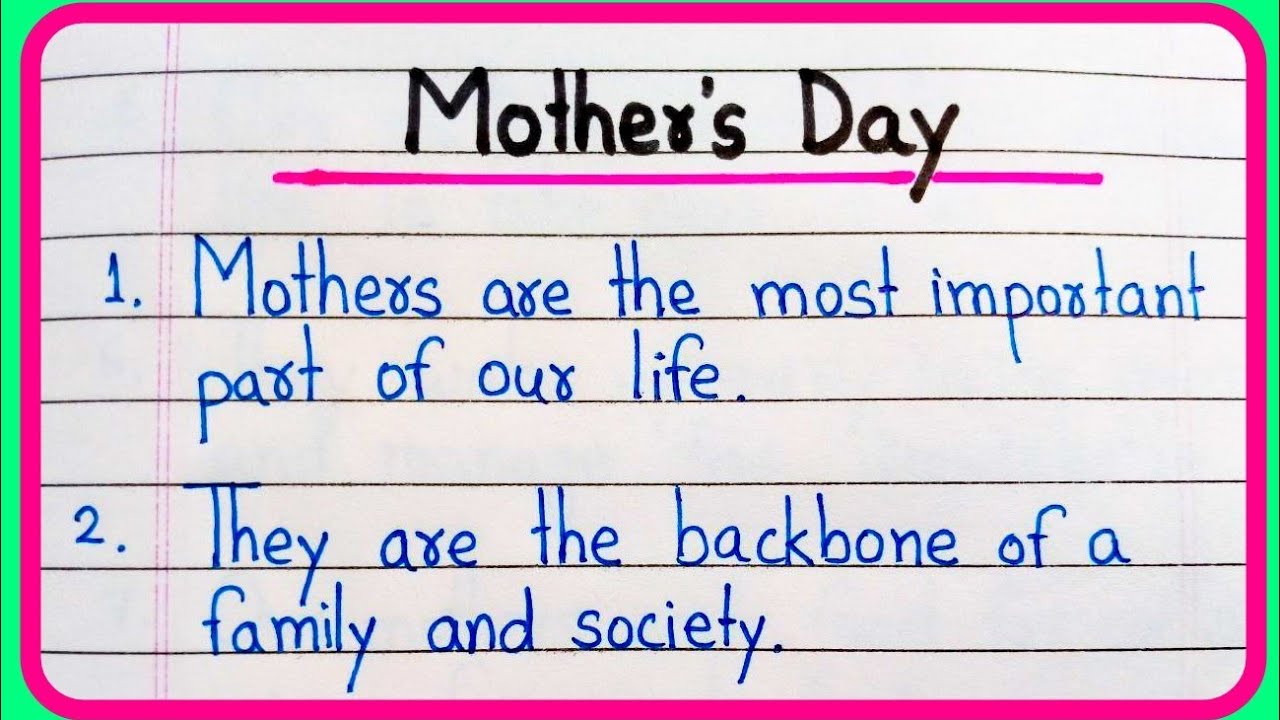 Mother's Day
1. Mothers are the most important
part of our life.
2. They are the backbone of a
family and society.